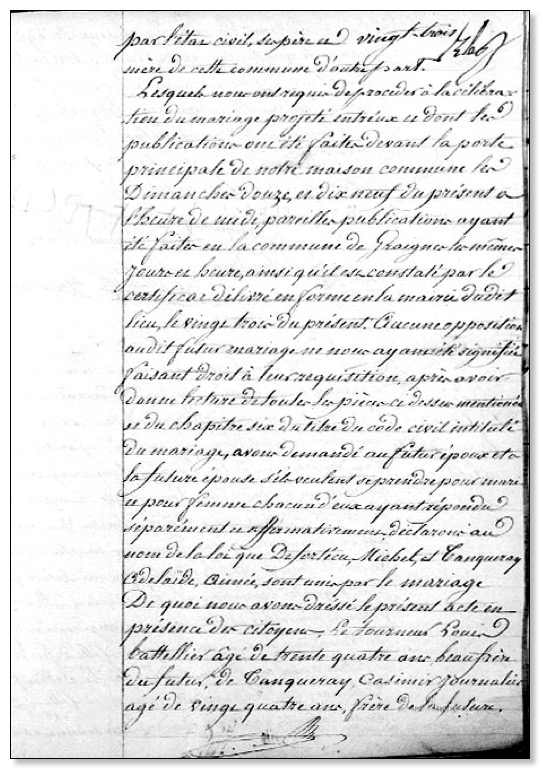 par l'état civil, ses père et vingt-trois
mère de cette commune d'autre part.
Lesquels nous ont requis de procéder à la célébra-
tion du mariage projeté entr'eux et dont les
publications ont été faites devant la porte
principale de notre maison commune les
Dimanches douze, et dix neuf du présent à
l'heure de midi, pareilles publications ayant
été faites en la commune de Graignes les mêmes
jours et heure, ainsi qu'il est constaté par le
certificat délivré en forme en la mairie du dit
lieu, le vingt trois du présent. Aucune opposition
au dit futur mariage ne nous ayant été signifiée
faisant droit à leur requisition, après avoir
donné lecture de toutes les pièces ci dessus mentionnées
et du chapitre six du titre du code civil intitulé
du mariage, avons demandé au futur époux et à
la future épouse s'ils veulent se prendre pour mari
et pour femme chacun d'eux ayant répondu
séparément et affermativement, déclarons au
nom de la loi que Desortieu, Michel, et Tanqueray
Adelaïde, Aimée, sont unis par le mariage
De quoi nous avons dréssé le présent acte en
présence des citoyens Le Tourneur Louis
battellier âgé de trente quatre ans, beau frère
du futur, de Tanqueray, Casimir journalier
agé de vingt quatre ans, frère de la future.